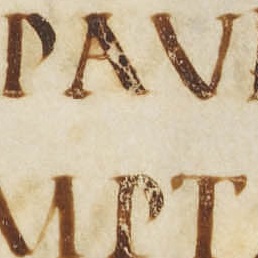 PAV
MPT